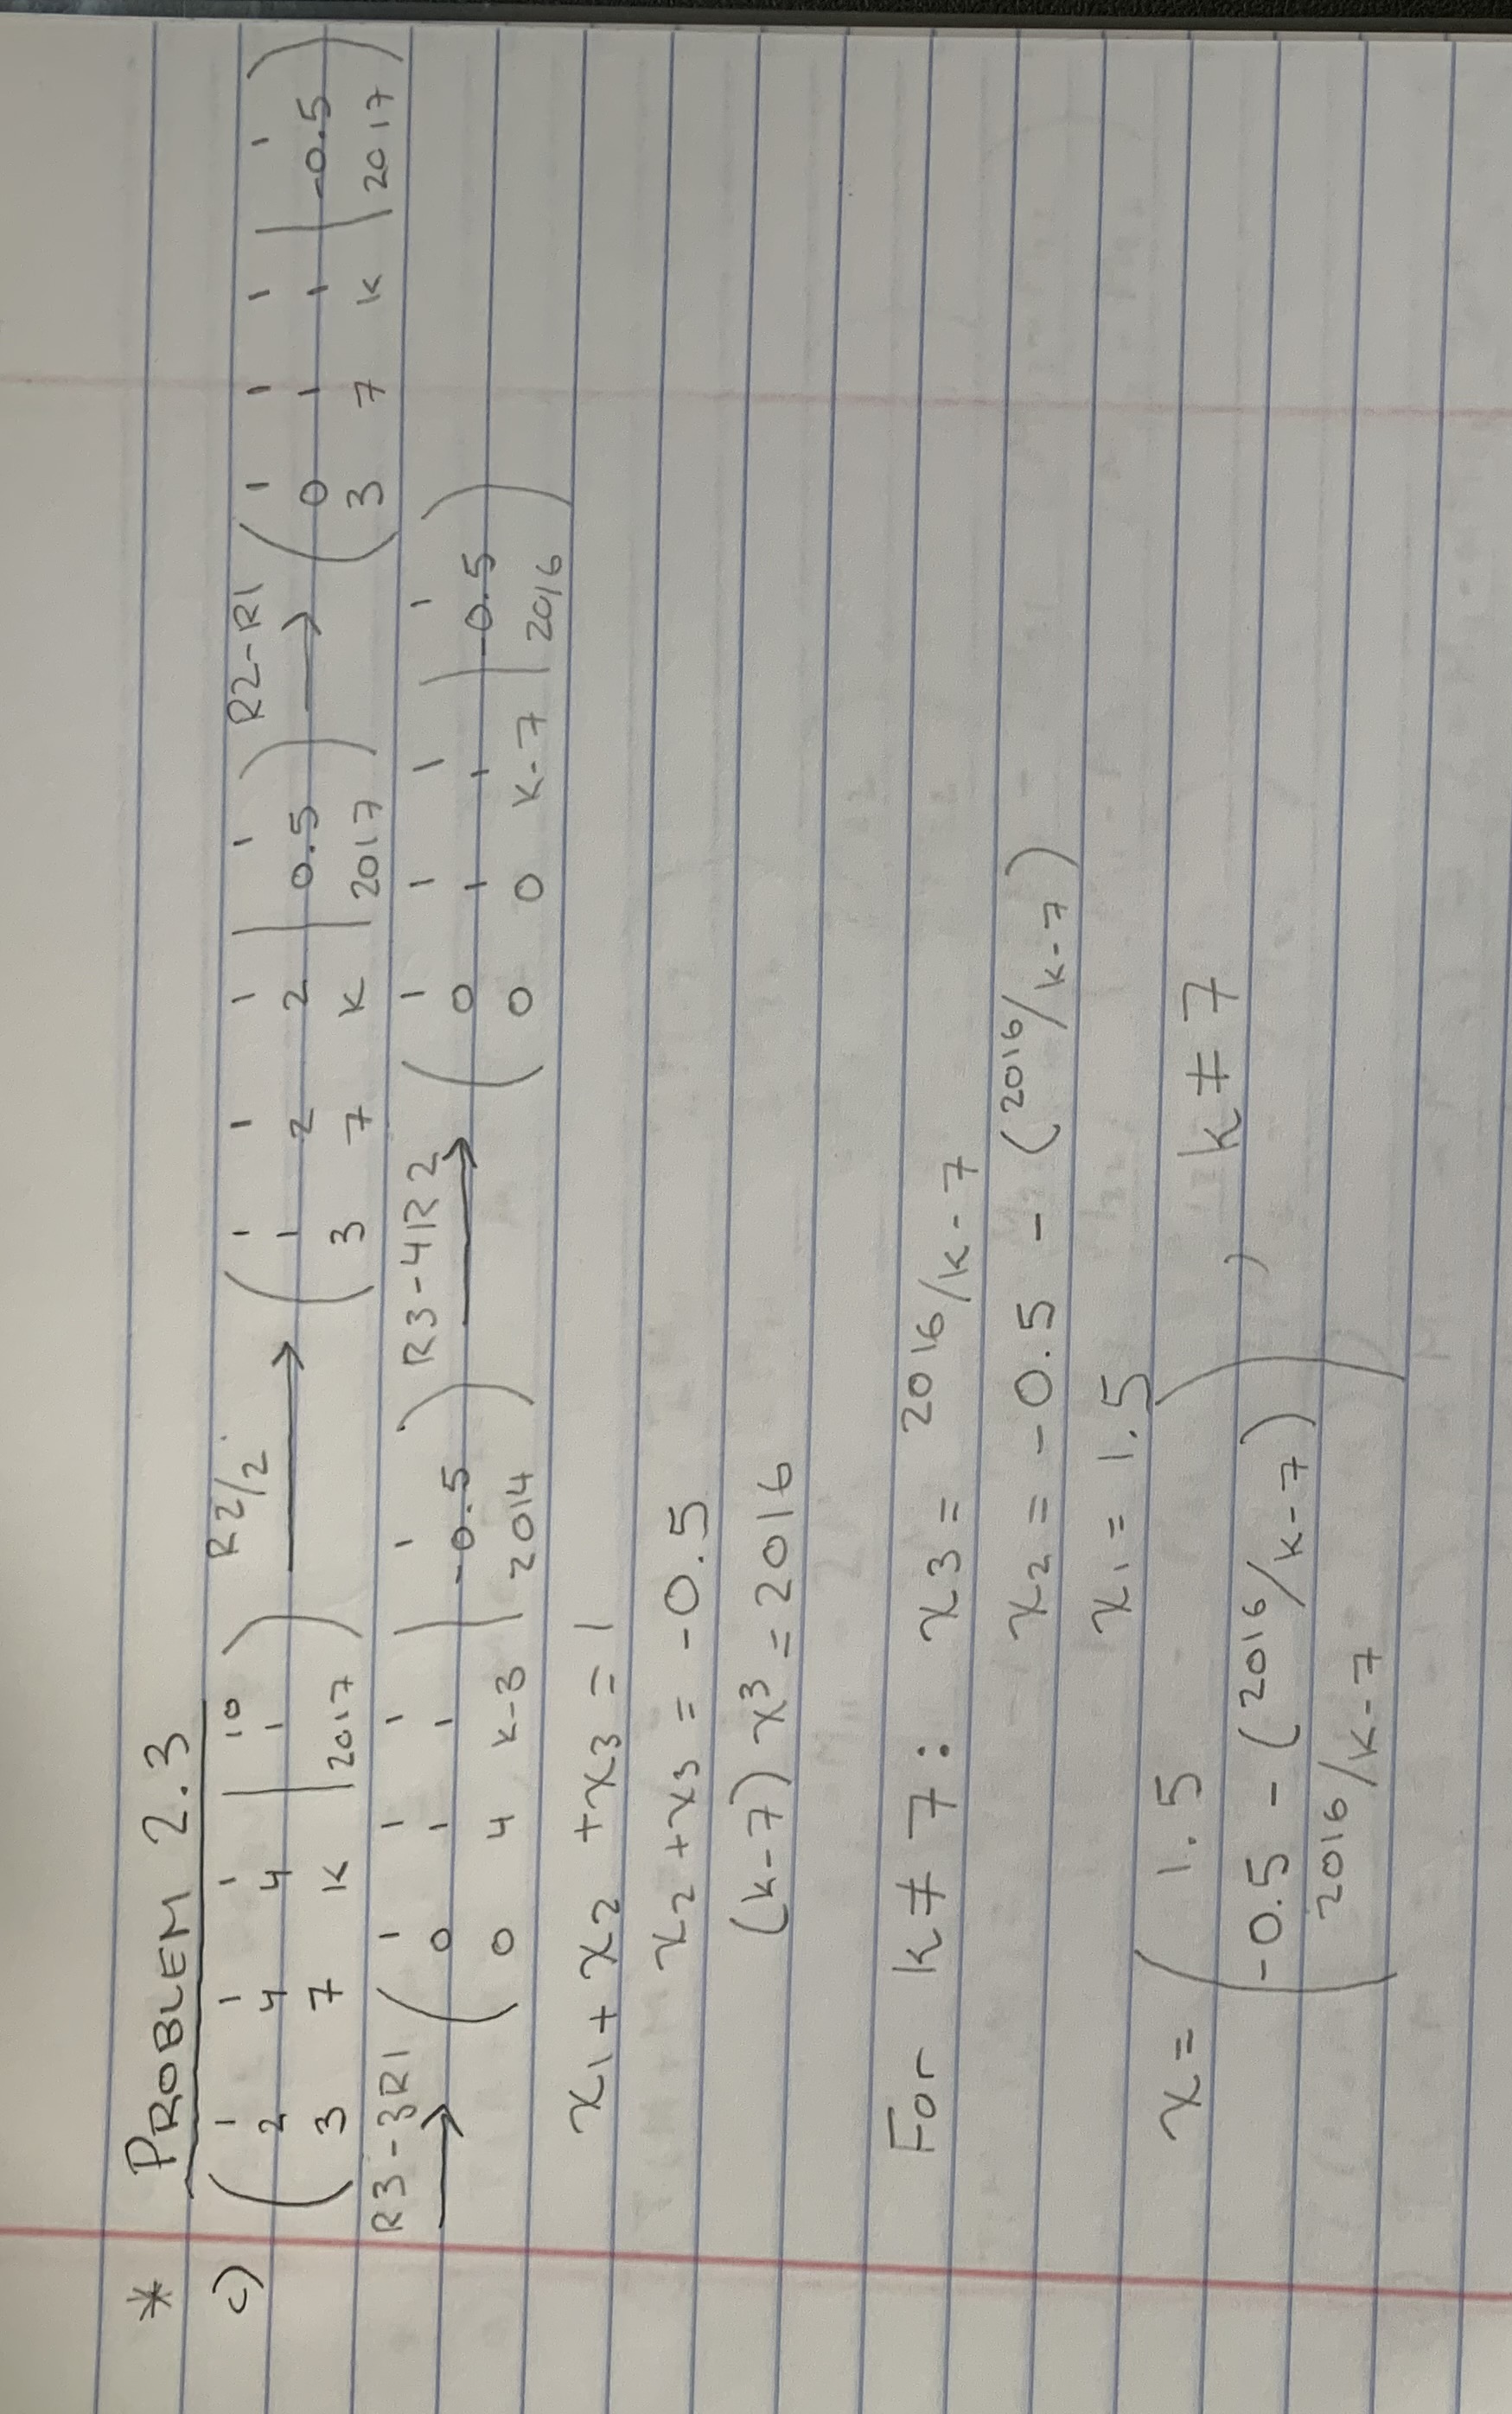 * PROBLEM 2.3
c) ( 1 1 1 | 10 ; 2 4 4 | 1 ; 3 7 K | 2017 ) R2/2 → ( 1 1 1 | 1 ; 1 2 2 | 0.5 ; 3 7 K | 2017 ) R2-R1 → ( 1 1 1 | 1 ; 0 1 1 | -0.5 ; 3 7 K | 2017 )
R3-3R1 → ( 1 1 1 | 1 ; 0 1 1 | -0.5 ; 0 4 K-3 | 2014 ) R3-4R2 → ( 1 1 1 | 1 ; 0 1 1 | -0.5 ; 0 0 K-7 | 2016 )
x₁ + x₂ + x₃ = 1
x₂ + x₃ = -0.5
(k-7) x³ = 2016
For k ≠ 7: x3 = 2016/K-7
x₂ = -0.5 - (2016/K-7)
x₁ = 1.5
x = ( 1.5 ; -0.5 - (2016/K-7) ; 2016/K-7 ) , k ≠ 7